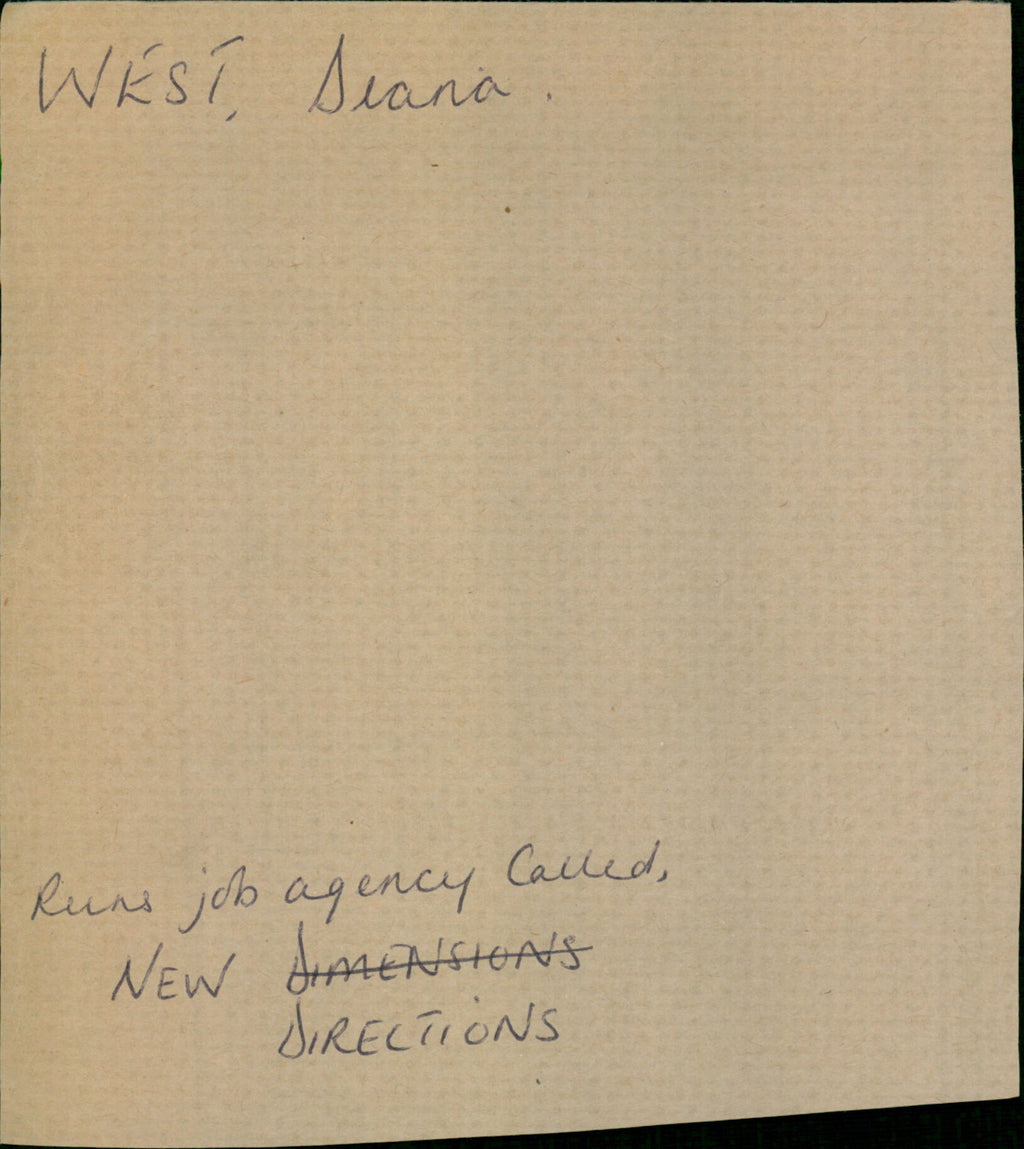 WEST, Diana.
Runs job agency Called,
NEW DIMENSIONS
DIRECTIONS